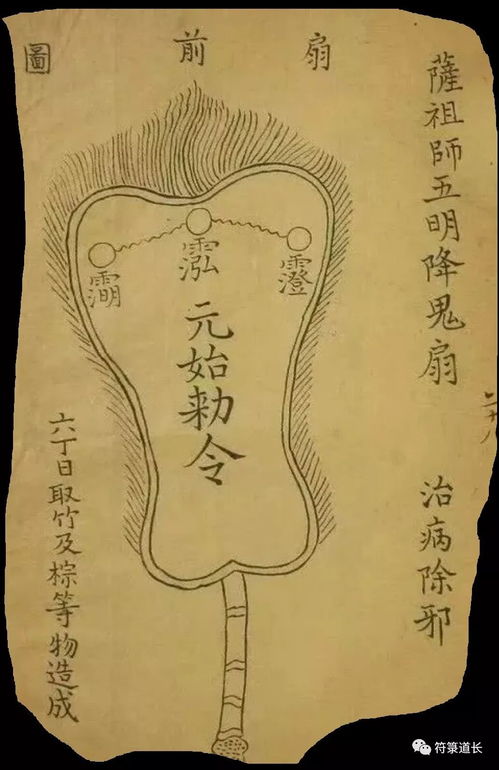 扇前圖
薩祖師五明降鬼扇
治病除邪
元始勅令
六丁日取竹及棕等物造成
符箓道长